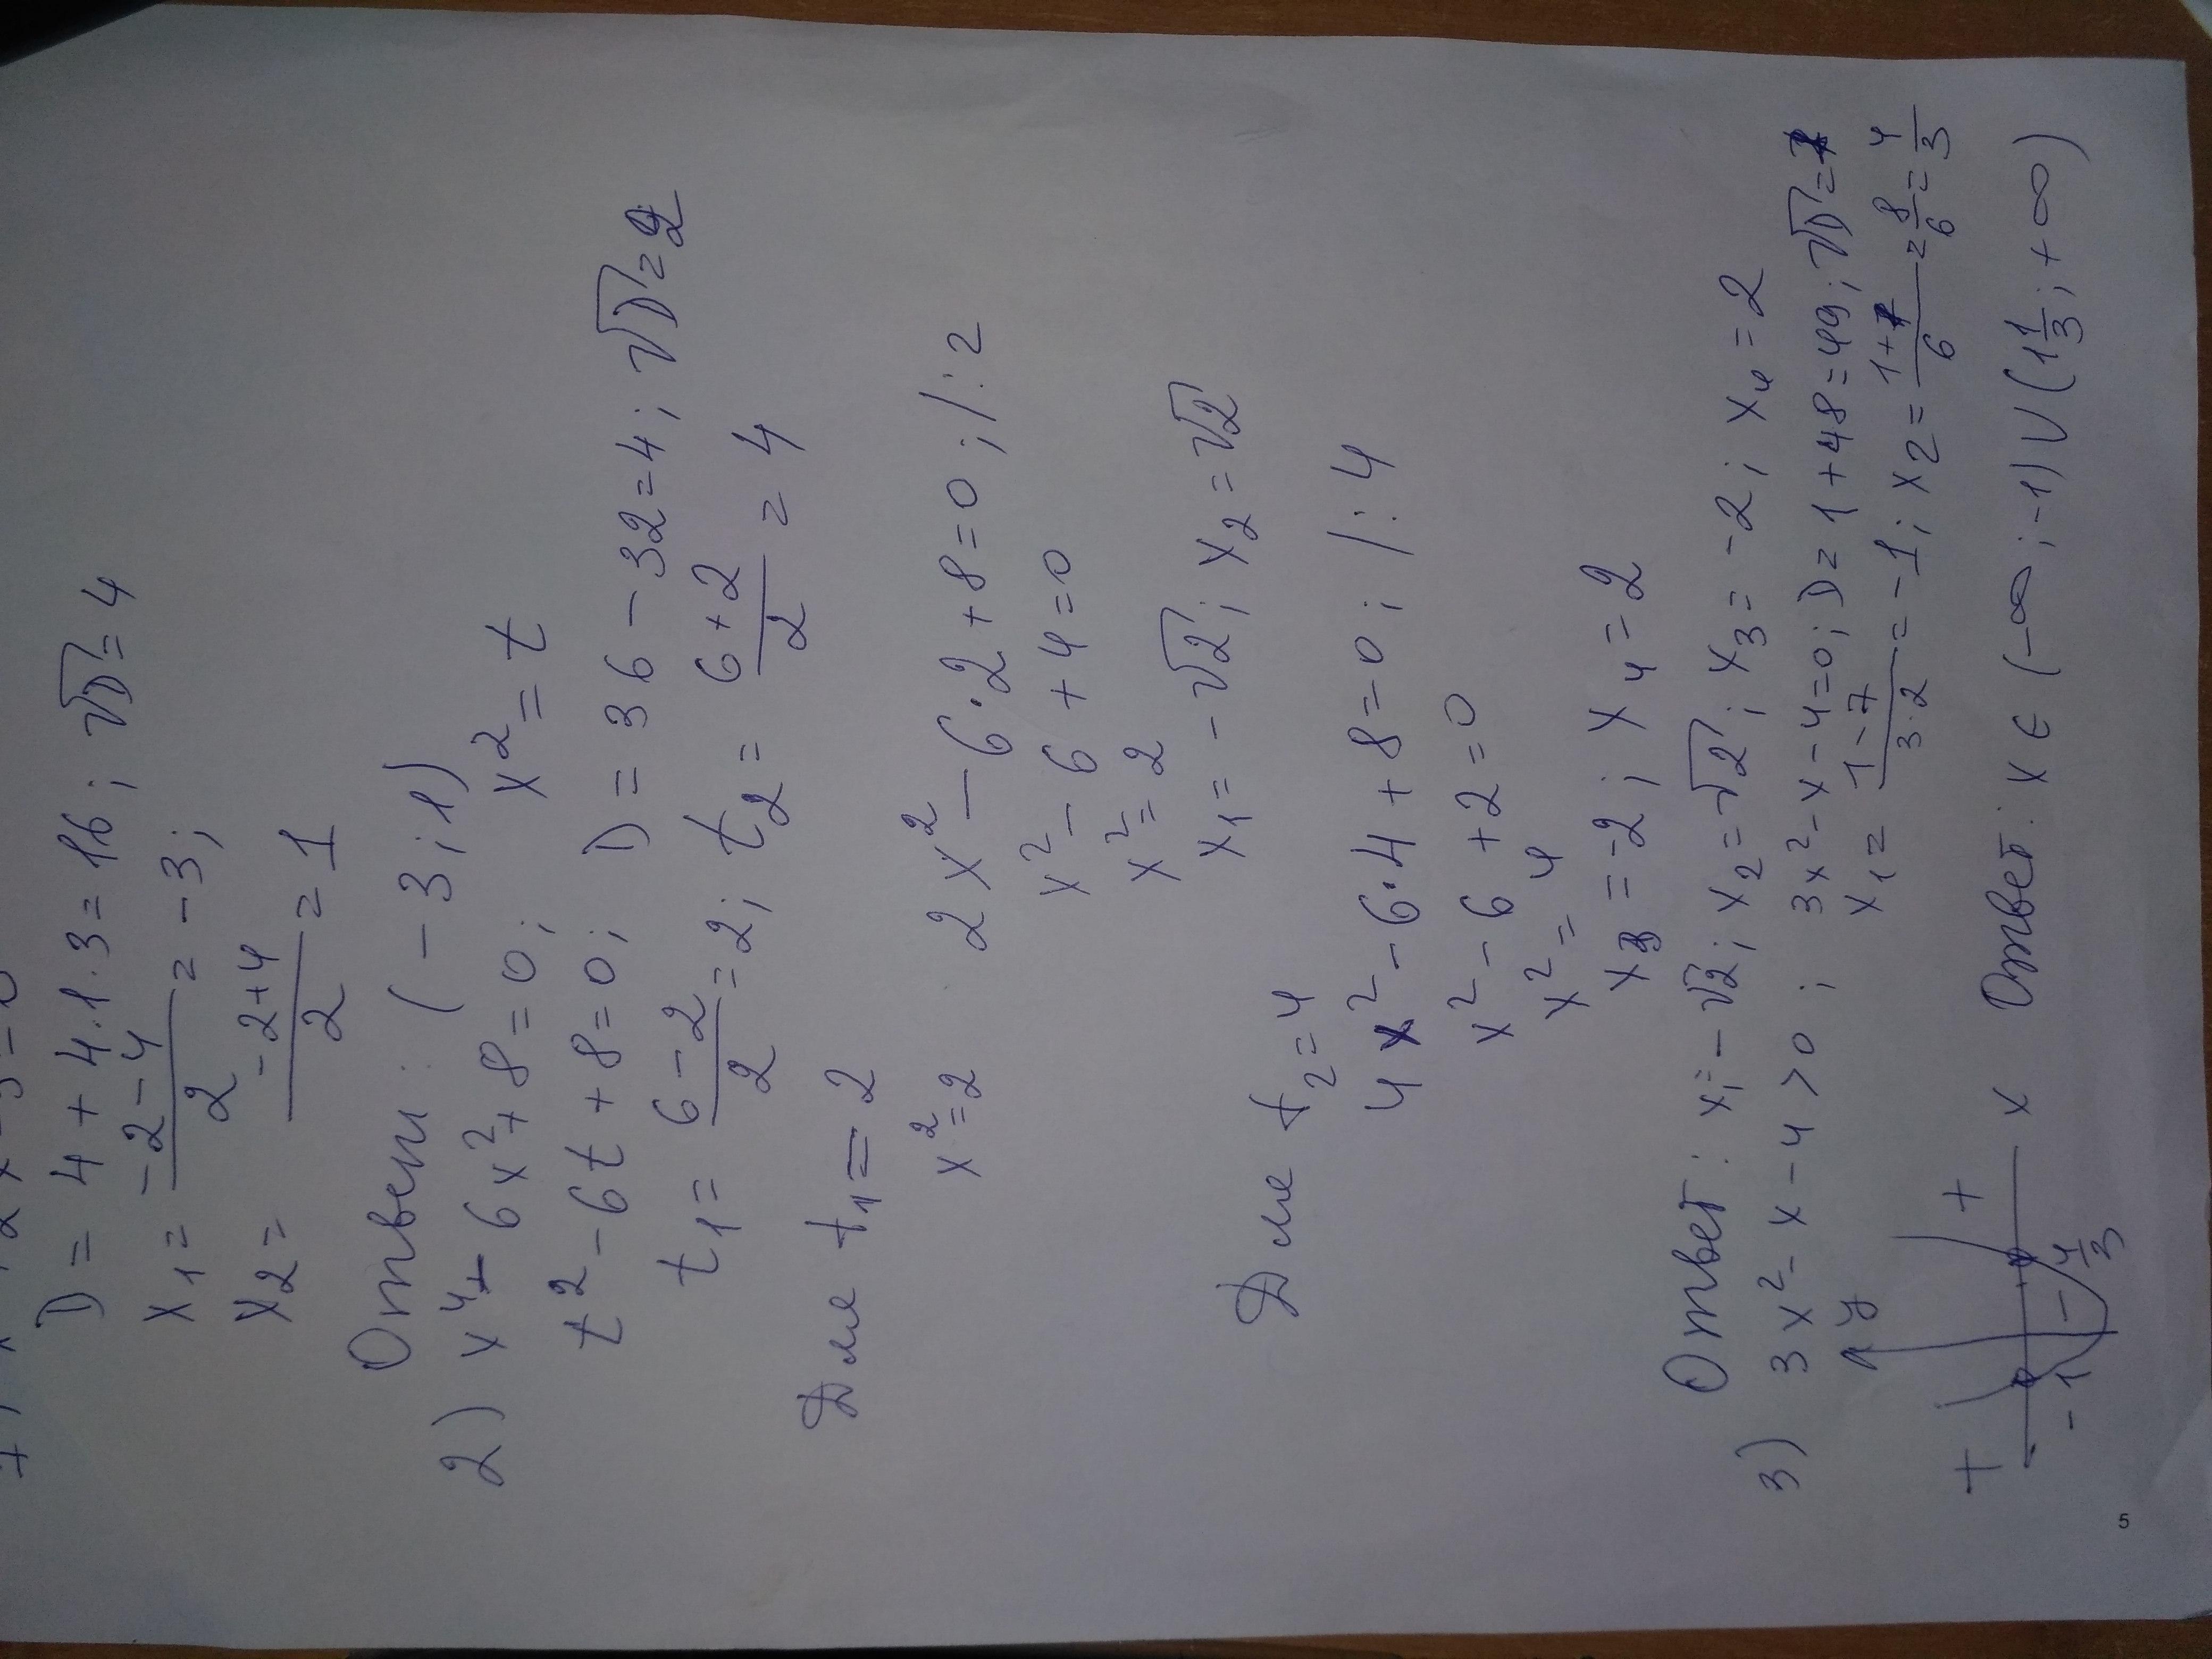 D = 4 + 4·1·3 = 16 ; √D = 4
x₁ = (-2-4)/2 = -3 ;
x₂ = (-2+4)/2 = 1
Ответ: (-3; 1)
2) x⁴ - 6x² + 8 = 0 ; x² = t
t² - 6t + 8 = 0 ; D = 36 - 32 = 4 ; √D = 2
t₁ = (6-2)/2 = 2 ; t₂ = (6+2)/2 = 4
Для t₁ = 2
x² = 2 2x² - 6·2 + 8 = 0 ; /:2
x² - 6 + 4 = 0
x² = 2
x₁ = -√2 ; x₂ = √2
Для t₂ = 4
4x² - 6·4 + 8 = 0 ; /:4
x² - 6 + 2 = 0
x² = 4
x₃ = -2 ; x₄ = 2
Ответ: x₁ = -√2 ; x₂ = √2 ; x₃ = -2 ; x₄ = 2
3) 3x² - x - 4 > 0 ; 3x² - x - 4 = 0 ; D = 1 + 48 = 49 ; √D = 7
x₁ = (1-7)/(3·2) = -1 ; x₂ = (1+7)/6 = 8/6 = 4/3
y
+ - + x
-1 4/3
Ответ: x ∈ (-∞ ; -1) ∪ (1 1/3 ; +∞)
5